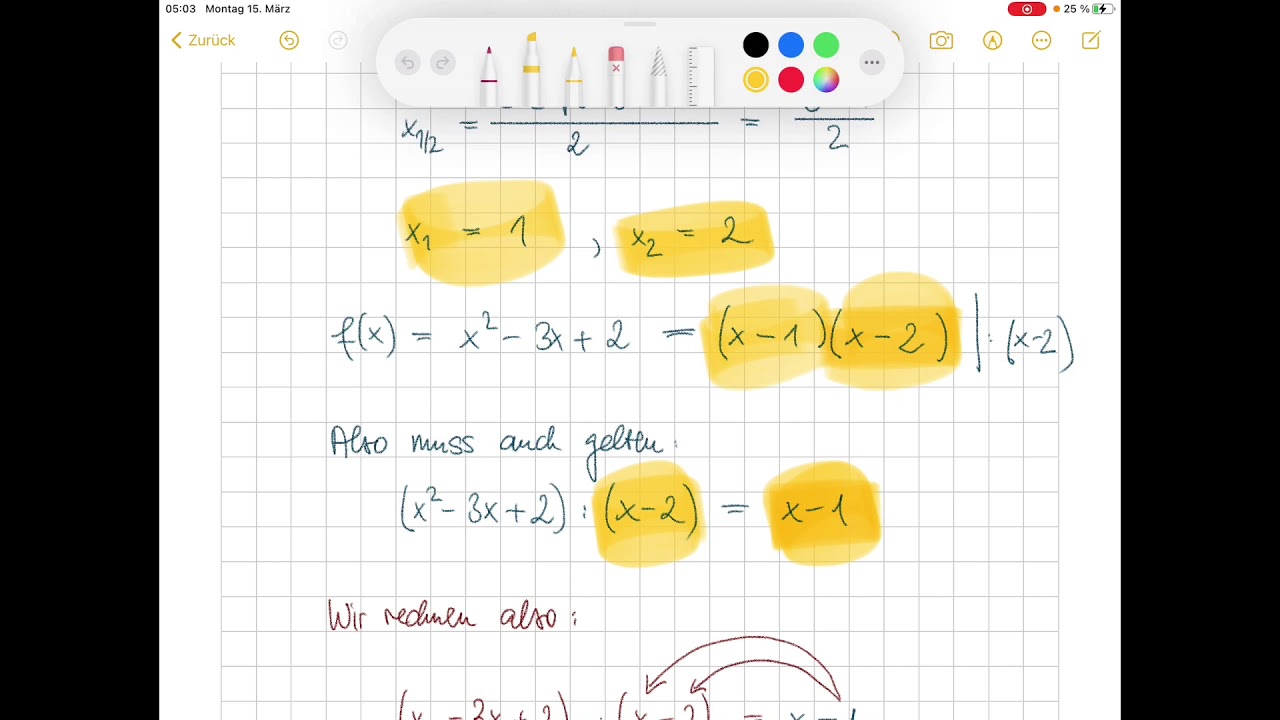 05:03 Montag 15. März 25 %
Zurück
x1/2 = 2 = 2
x1 = 1 , x2 = 2
f(x) = x² − 3x + 2 = (x − 1)(x − 2) | : (x−2)
Also muss auch gelten:
(x² − 3x + 2) : (x − 2) = x − 1
Wir rechnen also: